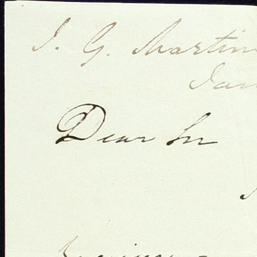 J. G. Martin
Jan
Dear Sir